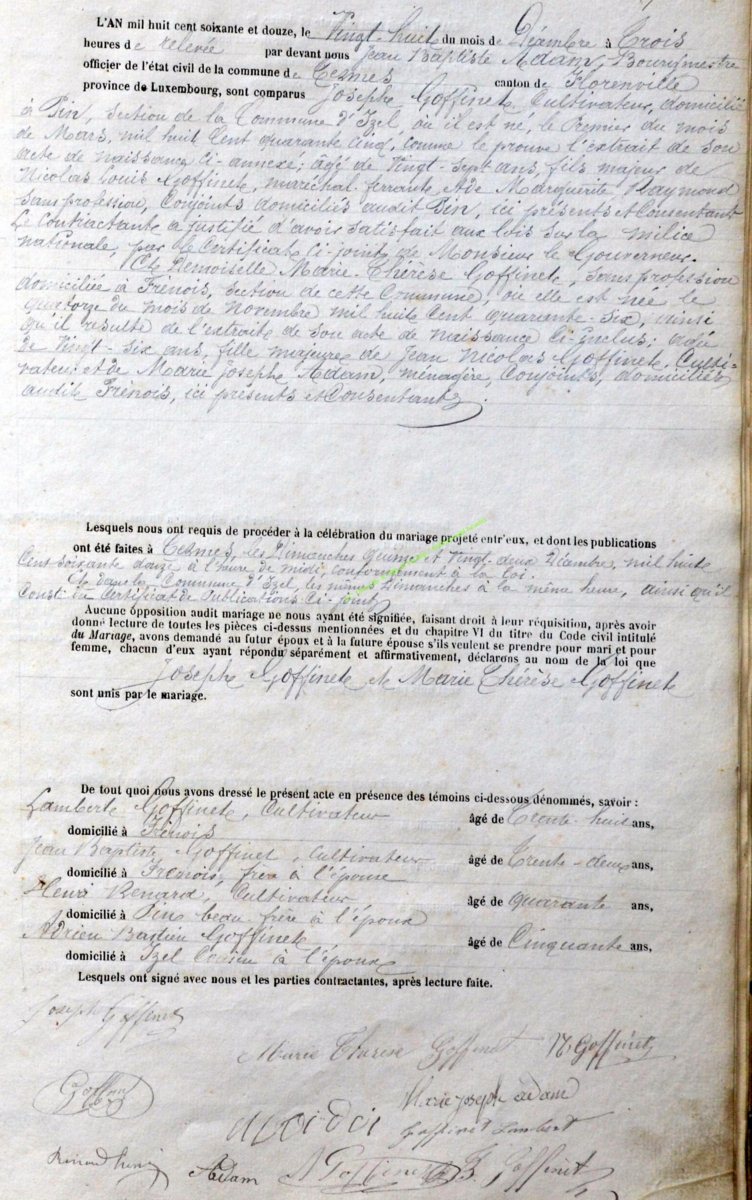 L'AN mil huit cent soixante et douze, le Vingt-huit du mois de Décembre à Trois
heures de relevée par devant nous Jean Baptiste Adam, Bourgmestre
officier de l'état civil de la commune de Termes canton de Florenville
province de Luxembourg, sont comparus Joseph Goffinet, Cultivateur, domicilié
à Pin, section de la Commune d'Izel, où il est né, le Premier du mois
de Mars, mil huit Cent quarante cinq, comme le prouve l'extrait de son
acte de naissance Ci-annexé; âgé de Vingt-sept ans, fils majeur de
Nicolas Louis Goffinet, maréchal ferrant, et de Marguerite
sans profession, Conjoints domiciliés audit Pin, ici présents et Consentant
Le Contractant a justifié d'avoir satisfait aux lois sur la milice
nationale, par le Certificat Ci-joint de Monsieur le Gouverneur.
Et Demoiselle Marie-Thérèse Goffinet, sans profession
domiciliée à Frenois, section de cette Commune, où elle est née le
quatorze du mois de Novembre mil huit Cent quarante-six, ainsi
qu'il résulte de l'extrait de son acte de naissance Ci-inclus; âgée
de Vingt-six ans, fille majeure de Jean Nicolas Goffinet, Culti-
vateur et de Marie Joseph Adam, ménagère, Conjoints, domiciliés
audit Frènois, ici présents et Consentant
Lesquels nous ont requis de procéder à la célébration du mariage projeté entr'eux, et dont les publications
ont été faites à Termes, les Dimanches quinze et Vingt-deux Décembre, mil huit
Cent soixante douze à l'heure de midi, conformément à la loi.
Et dans la Commune d'Izel, les mêmes Dimanches à la même heure, ainsi qu'il
Conste du Certificat de Publications Ci-joint
Aucune opposition audit mariage ne nous ayant été signifiée, faisant droit à leur réquisition, après avoir
donné lecture de toutes les pièces ci-dessus mentionnées et du chapitre VI du titre du Code civil intitulé
du Mariage, avons demandé au futur époux et à la future épouse s'ils veulent se prendre pour mari et pour
femme, chacun d'eux ayant répondu séparément et affirmativement, déclarons au nom de la loi que
Joseph Goffinet et Marie Thérèse Goffinet
sont unis par le mariage.
De tout quoi nous avons dressé le présent acte en présence des témoins ci-dessous dénommés, savoir :
Lambert Goffinet, Cultivateur âgé de Trente-huit ans,
domicilié à Frenois
Jean Baptiste Goffinet, Cultivateur âgé de Trente-deux ans,
domicilié à Frenois, frère à l'épouse
Henri Renard, Cultivateur âgé de quarante ans,
domicilié à Pin beau frère à l'époux
Adrien Bastien Goffinet âgé de Cinquante ans,
domicilié à Izel Cousin à l'époux
Lesquels ont signé avec nous et les parties contractantes, après lecture faite.
Joseph Goffinet
Marie Thérèse Goffinet N Goffinet
Goffinet
Marie joseph adam
Goffinet Lambert
Renard henri Adam A Goffinet B Goffinet